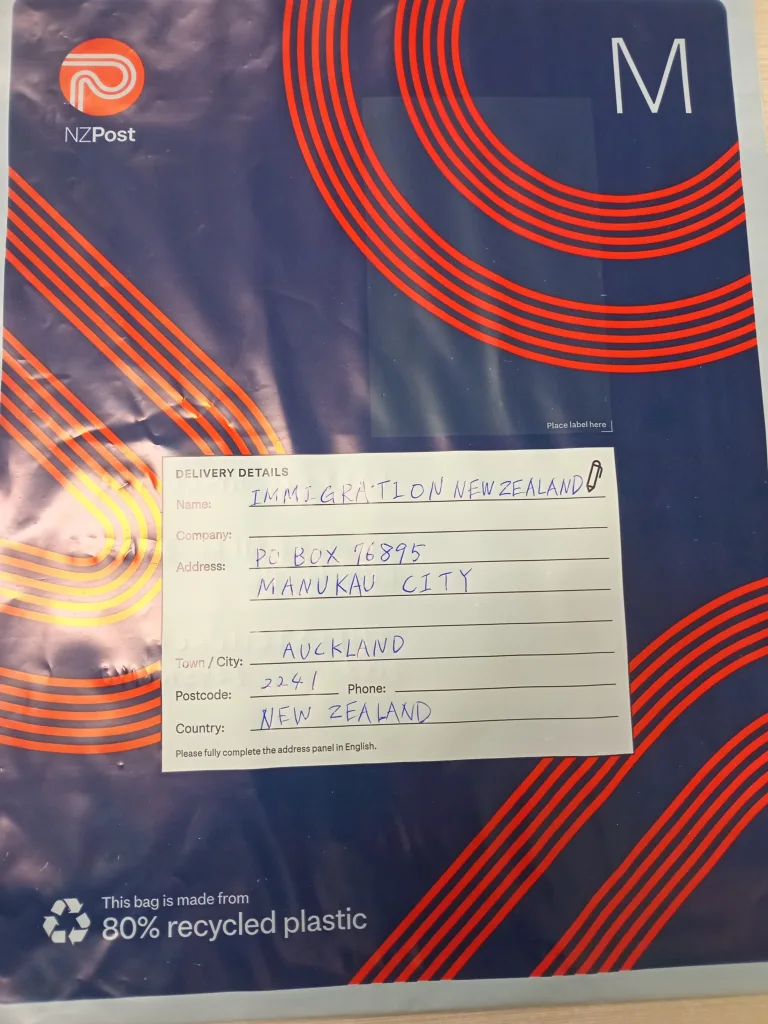 NZPost
M
Place label here
DELIVERY DETAILS
Name: IMMIGRATION NEW ZEALAND
Company:
Address: PO BOX 76895
MANUKAU CITY
Town / City: AUCKLAND
Postcode: 2241 Phone:
Country: NEW ZEALAND
Please fully complete the address panel in English.
This bag is made from
80% recycled plastic